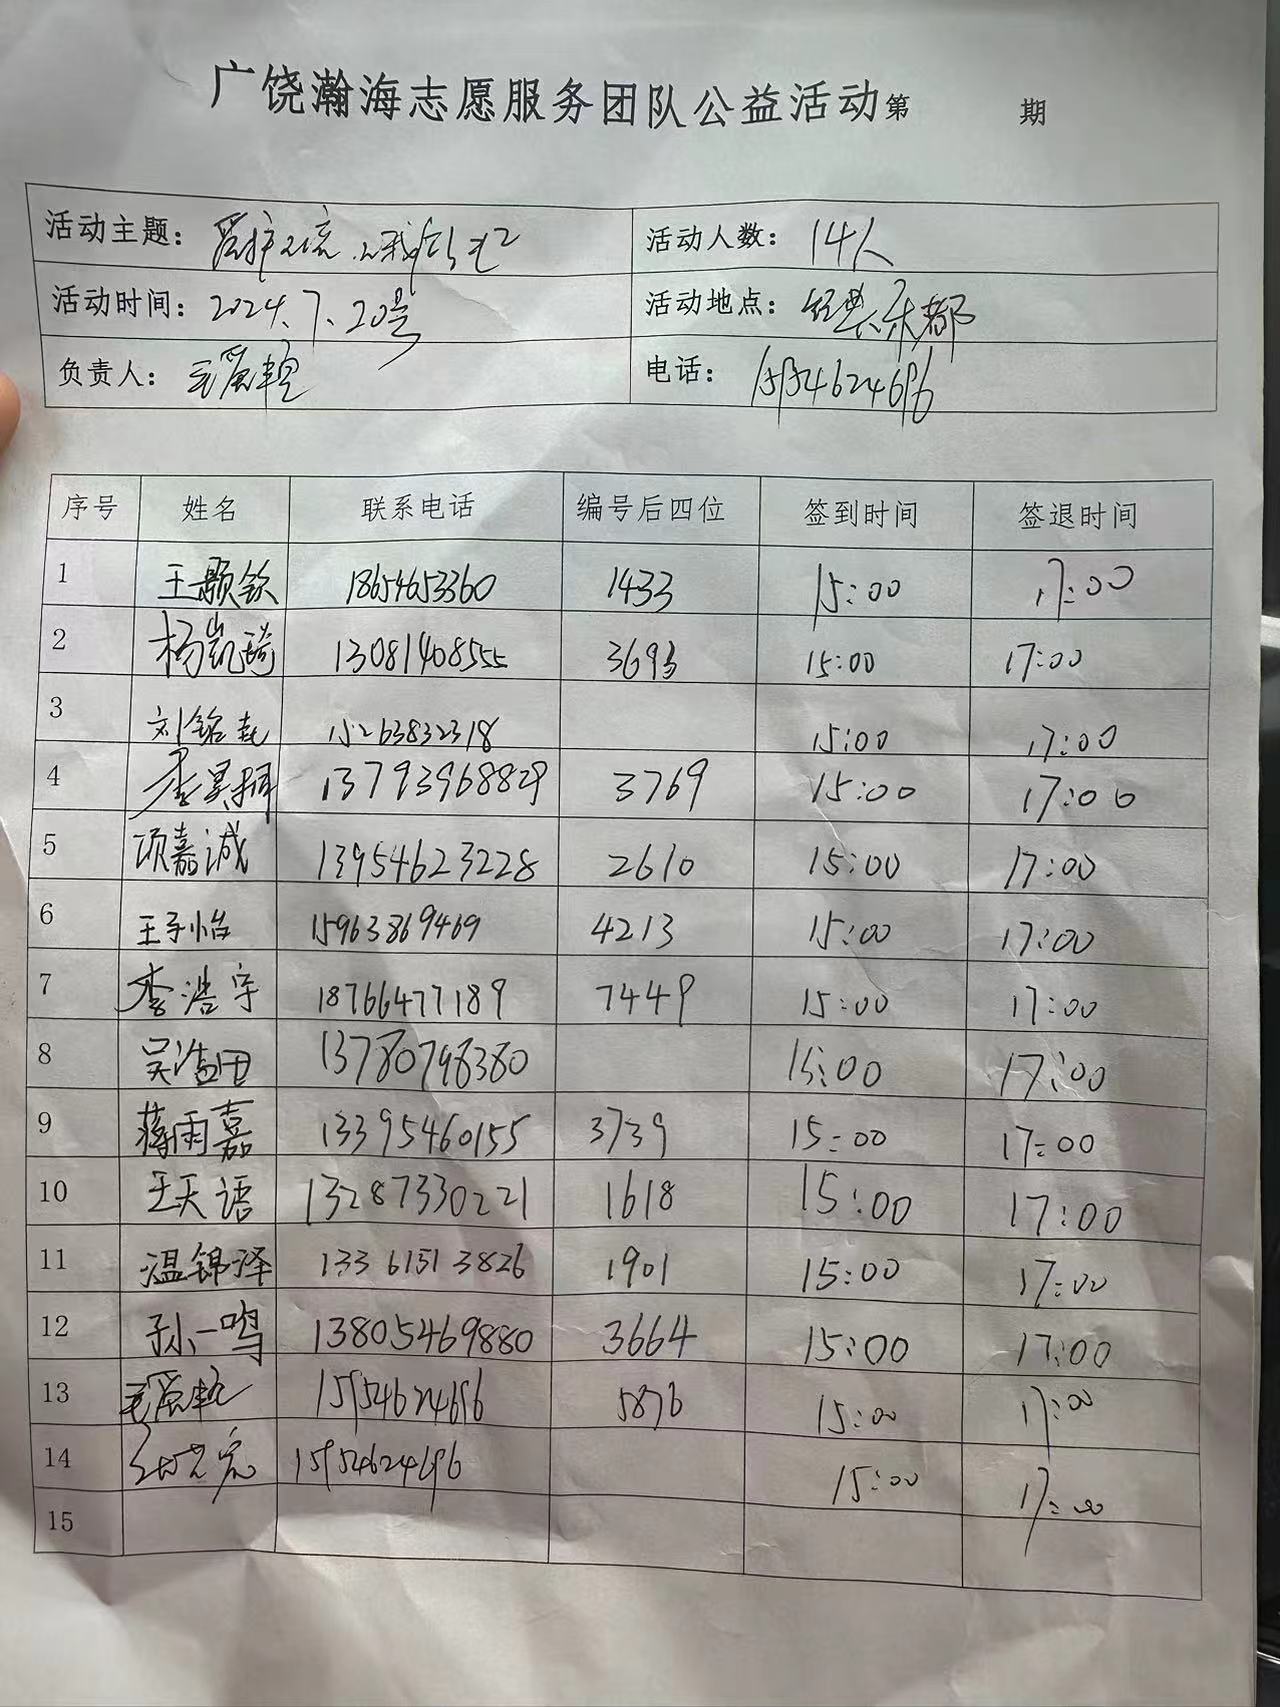 广饶瀚海志愿服务团队公益活动第 期
活动主题：爱护环境 从我做起 活动人数：14人
活动时间：2024.7.20号 活动地点：经典水都
负责人： 电话：15954624696
序号 姓名 联系电话 编号后四位 签到时间 签退时间
1 王颢钦 18654653360 1433 15:00 17:00
2 杨凯琦 13081408555 3693 15:00 17:00
3 刘铭 15263832318 15:00 17:00
4 李昊 13793968829 3769 15:00 17:00
5 项嘉诚 13954623228 2610 15:00 17:00
6 王子怡 15963869469 4213 15:00 17:00
7 李浩宇 18766477189 7449 15:00 17:00
8 吴 13780798380 15:00 17:00
9 蒋雨嘉 13395460155 3739 15:00 17:00
10 王天语 13287330221 1618 15:00 17:00
11 温锦泽 13361513826 1901 15:00 17:00
12 孙一鸣 13805469880 3664 15:00 17:00
13 15954624696 5876 15:00 17:00
14 15954624696 15:00 17:00
15